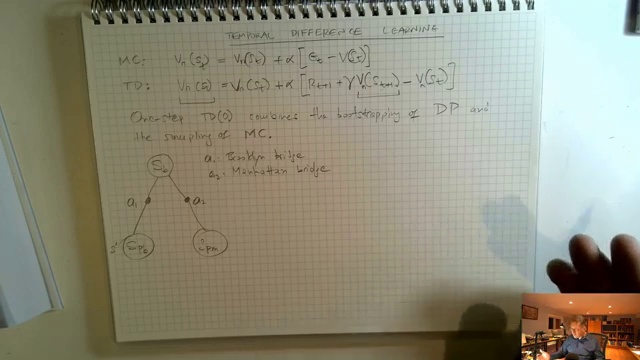 TEMPORAL DIFFERENCE LEARNING
MC: Vπ(St) = Vπ(St) + α [Gt − V(St)]
TD: Vπ(St) = Vπ(St) + α [Rt+1 + γVπ(St+1) − V(St)]
One-step TD(0) combines the bootstrapping of DP and
the sampling of MC.
a1: Brooklyn bridge
a2: Manhattan bridge
a1 a2
s'